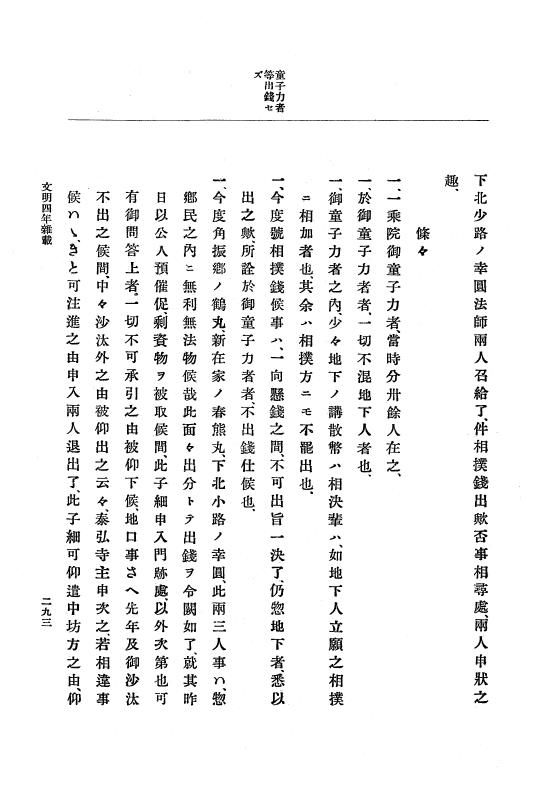 童子力者
等出錢セ
ズ
下北少路ノ幸圓法師兩人召給了、件相撲錢出歟否事相尋處、兩人申狀之
趣、
條々
一、一乘院御童子力者、當時分卅餘人在之、
一、於御童子力者者、一切不混地下人者也、
一、御童子力者之內、少々地下ノ講散幣ハ相決輩ハ、如地下人立願之相撲
ニ相加者也、其余ハ相撲方ニモ不罷出也、
一、今度號相撲錢候事ハ、一向懸錢之間、不可出旨一決了、仍惣地下者、悉以
出之歟、所詮於御童子力者者、不出錢仕候也、
一、今度角振鄉ノ鶴丸、新在家ノ春熊丸、下北小路ノ幸圓、此兩三人事ハ、惣
鄉民之內ニ無利無法物候哉、此面々出分トテ出錢ヲ令闕如了、就其昨
日以公人預催促、剩資物ヲ被取候間、此子細申入門跡處、以外次第也、可
有御問答上者、一切不可承引之由被仰下候、地口事さへ先年及御沙汰
不出之候間、中々沙汰外之由被仰出之云々、泰弘寺主申次之、若相違事
候ハヽ、きと可注進之由申入、兩人退出了、此子細可仰遣中坊方之由、仰
文明四年雜載
二九三